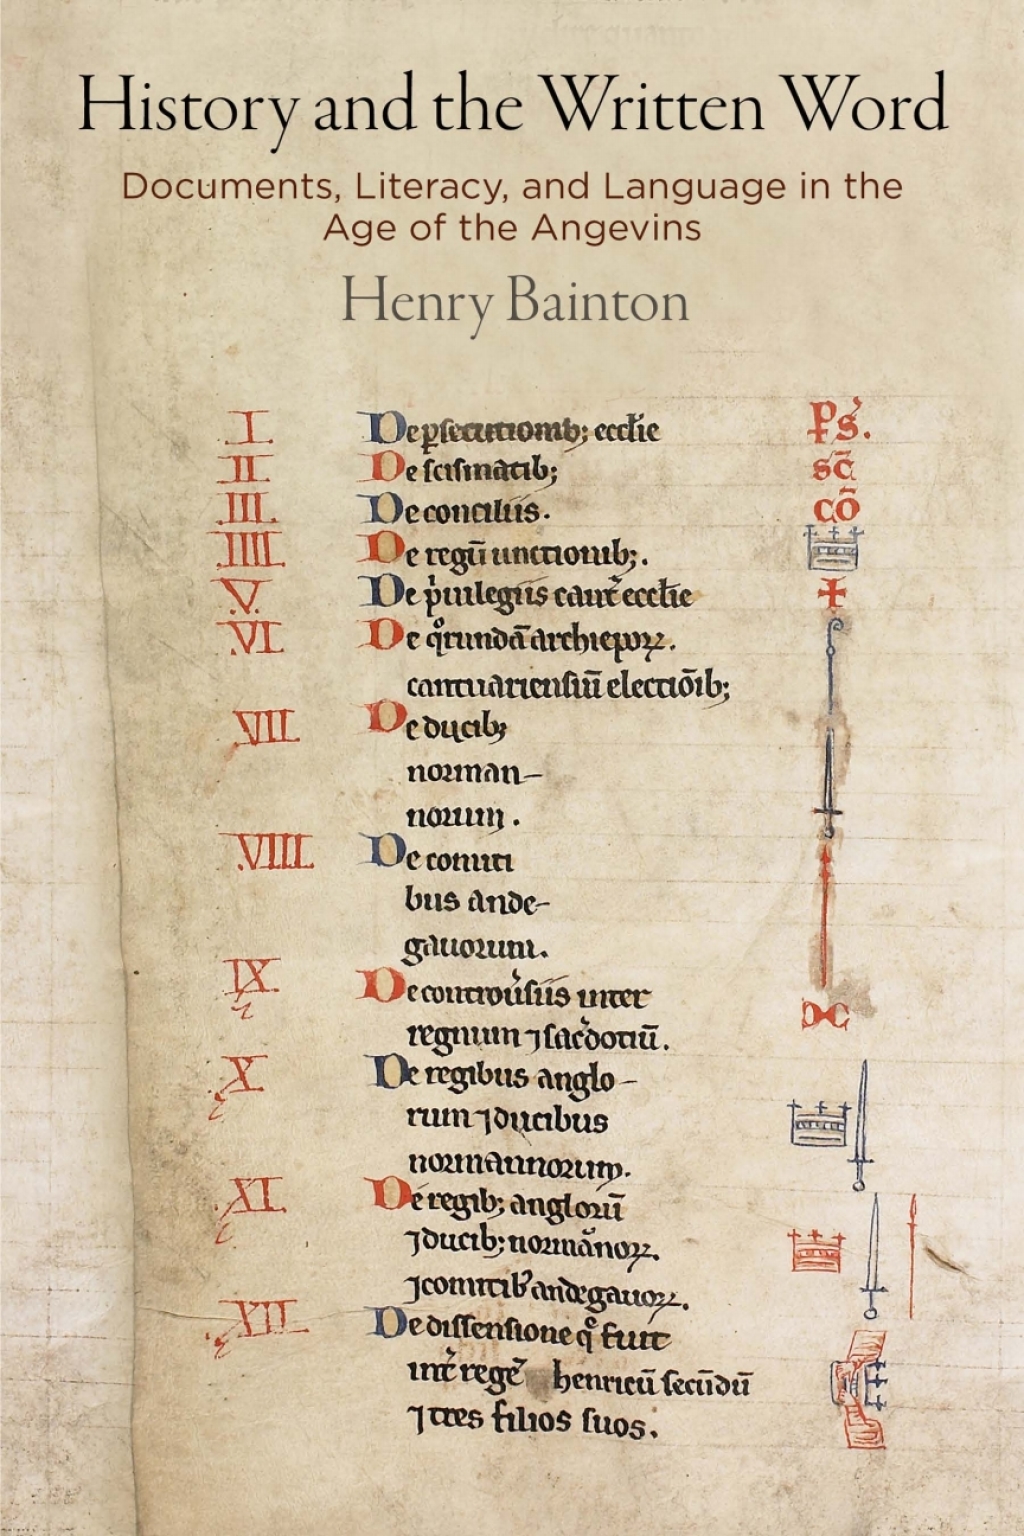 History and the Written Word
Documents, Literacy, and Language in the
Age of the Angevins
Henry Bainton
.I. De p̲secutionib; eccl̄ie P̲s᾽.
.II. De scismatib; sc̄
.III. De conciliis. cō
.IIII. De regū unctionib;.
.V. De p᾽uilegiis cant᾽ eccl̄ie
.VI. De q̊rundā archiep̲oꝝ.
cantuariensiū electiōib;
.VII. De ducib;
norman-
norum.
.VIII. De comiti
bus ande-
gauorum.
.IX. De controu᾽siis inter
regnum ⁊ sac᾽dotiū.
.X. De regibus anglo-
rum ⁊ ducibus
normannorum.
.XI. De regib; anglorū
⁊ ducib; normānoꝝ.
⁊ comitib᾽ andegauoꝝ.
.XII. De dissensione q̊ fuit
int᾽ regē henricū secūdū
⁊ tres filios suos.